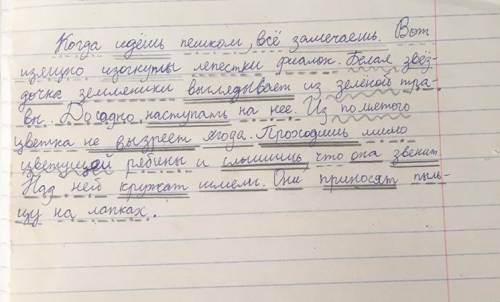 Когда идёшь пешком, всё замечаешь. Вот
изящно изогнуты лепестки фиалок. Белая звёз-
дочка земленики выглядывает из зелёной тра-
вы. Досадно наступать на нее. Из помятого
цветка не вызреет ягода. Проходишь мимо
цветущей рябины и слышишь, что она звенит.
Над ней кружат шмели. Они приносят пыль-
цу на лапках.